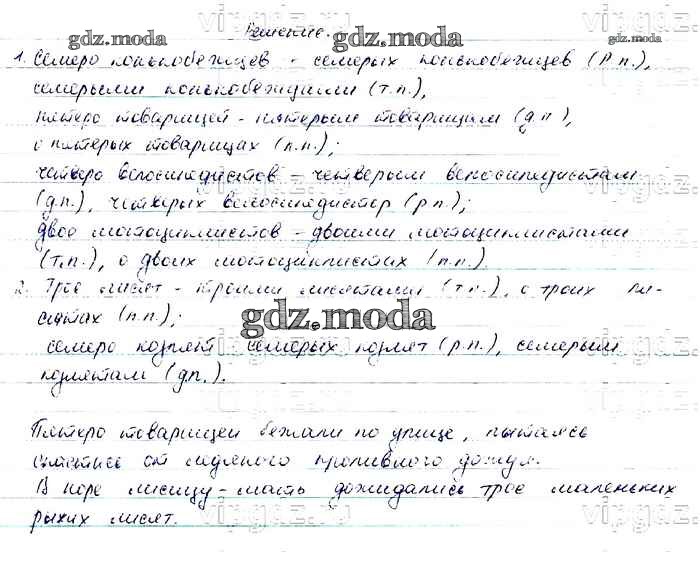 Решение.
1. Семеро конькобежцев - семерых конькобежцев (Р.п.),
семерыми конькобежцами (т.п.),
пятеро товарищей - пятерым товарищам (д.п.),
о пятерых товарищах (п.п.);
четверо велосипедистов - четверым велосипедистам
(д.п.), четверых велосипедистов (р.п.);
двое мотоциклистов - двоими мотоциклистами
(т.п.), о двоих мотоциклистах (п.п.).
2. Трое лисят - троими лисятами (т.п.), о троих ли-
сятах (п.п.);
семеро козлят семерых козлят (р.п.), семерым
козлятам (д.п.).
Пятеро товарищей бежали по улице, пытаясь
спастись от проливного дождя.
В норе лисицу-мать дожидались трое маленьких
рыжих лисят.
gdz.moda
gdz.moda
gdz.moda
gdz.moda
vipgdz.ru